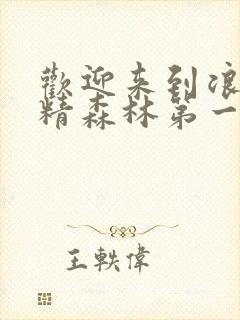 歡迎来到浪
精森林第一
王軼偉